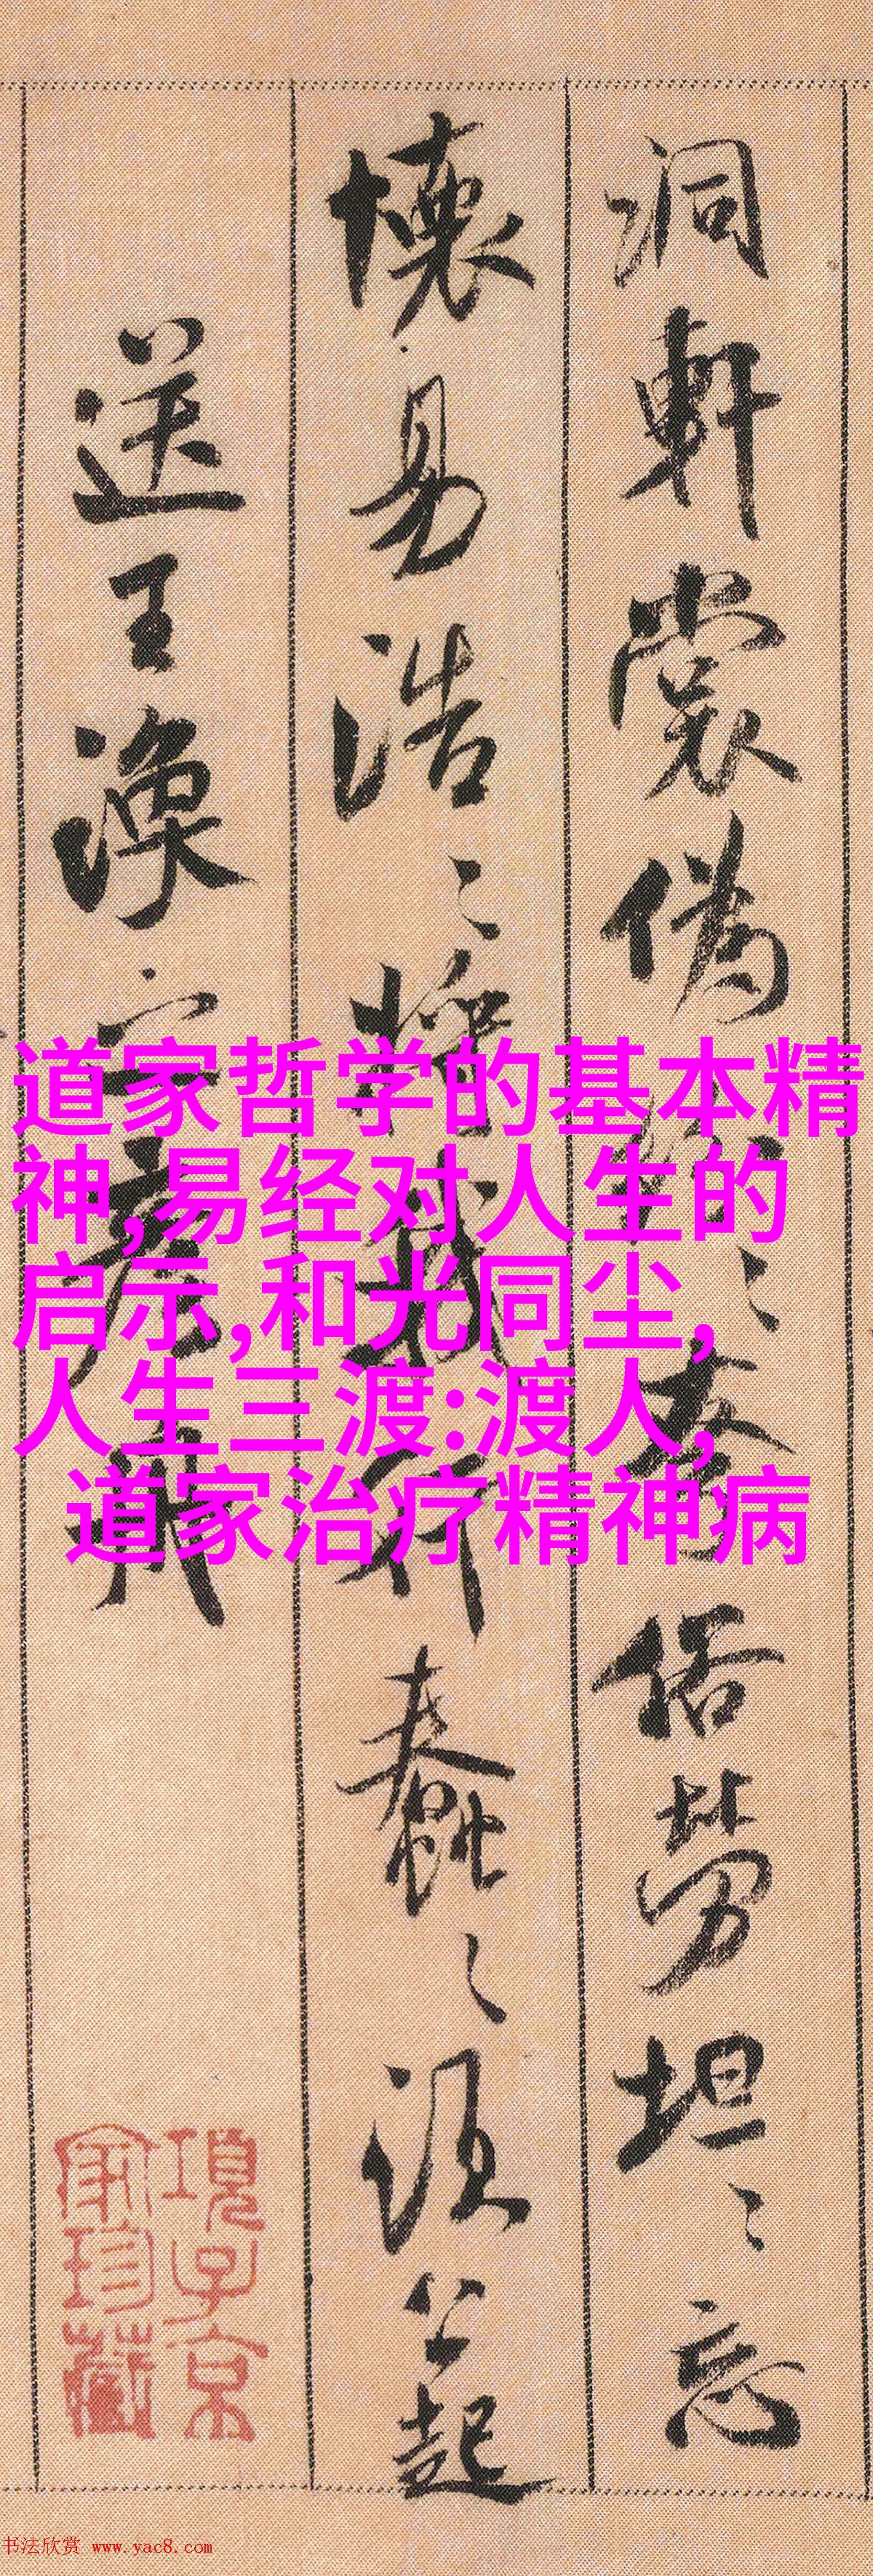 洞軒裳偽
俗勞坦〻忘
懐易浩〻將我行蠢〻須公起
送王渙之彦舟
道家哲学的基本精
神,易经对人生的
启示,和光同尘,
人生三渡:渡人,
道家治疗精神病
項子京
家珍藏
书法欣赏 www.yac8.com